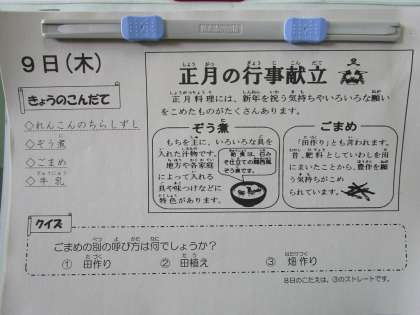 9日(木)
きょうのこんだて
◇れんこんのちらしずし
◇ぞう煮
◇ごまめ
◇牛乳
正月の行事献立
正月料理には、新年を祝う気持ちやいろいろな願い
をこめたものがたくさんあります。
ぞう煮
もちを主に、いろいろな具を
入れた汁物です。
地方や各家庭
によって入れる
具や味つけなどに
特色があります。
給食は、白み
そ仕立ての関西風
ぞう煮です。
ごまめ
「田作り」とも言われます。
昔、肥料としていわしを田
にまいたことから、豊作を願
う気持ちがこめ
られています。
クイズ
ごまめの別の呼び方は何でしょうか?
① 田作り ② 田植え ③ 畑作り
8日のこたえは、③のストレートです。